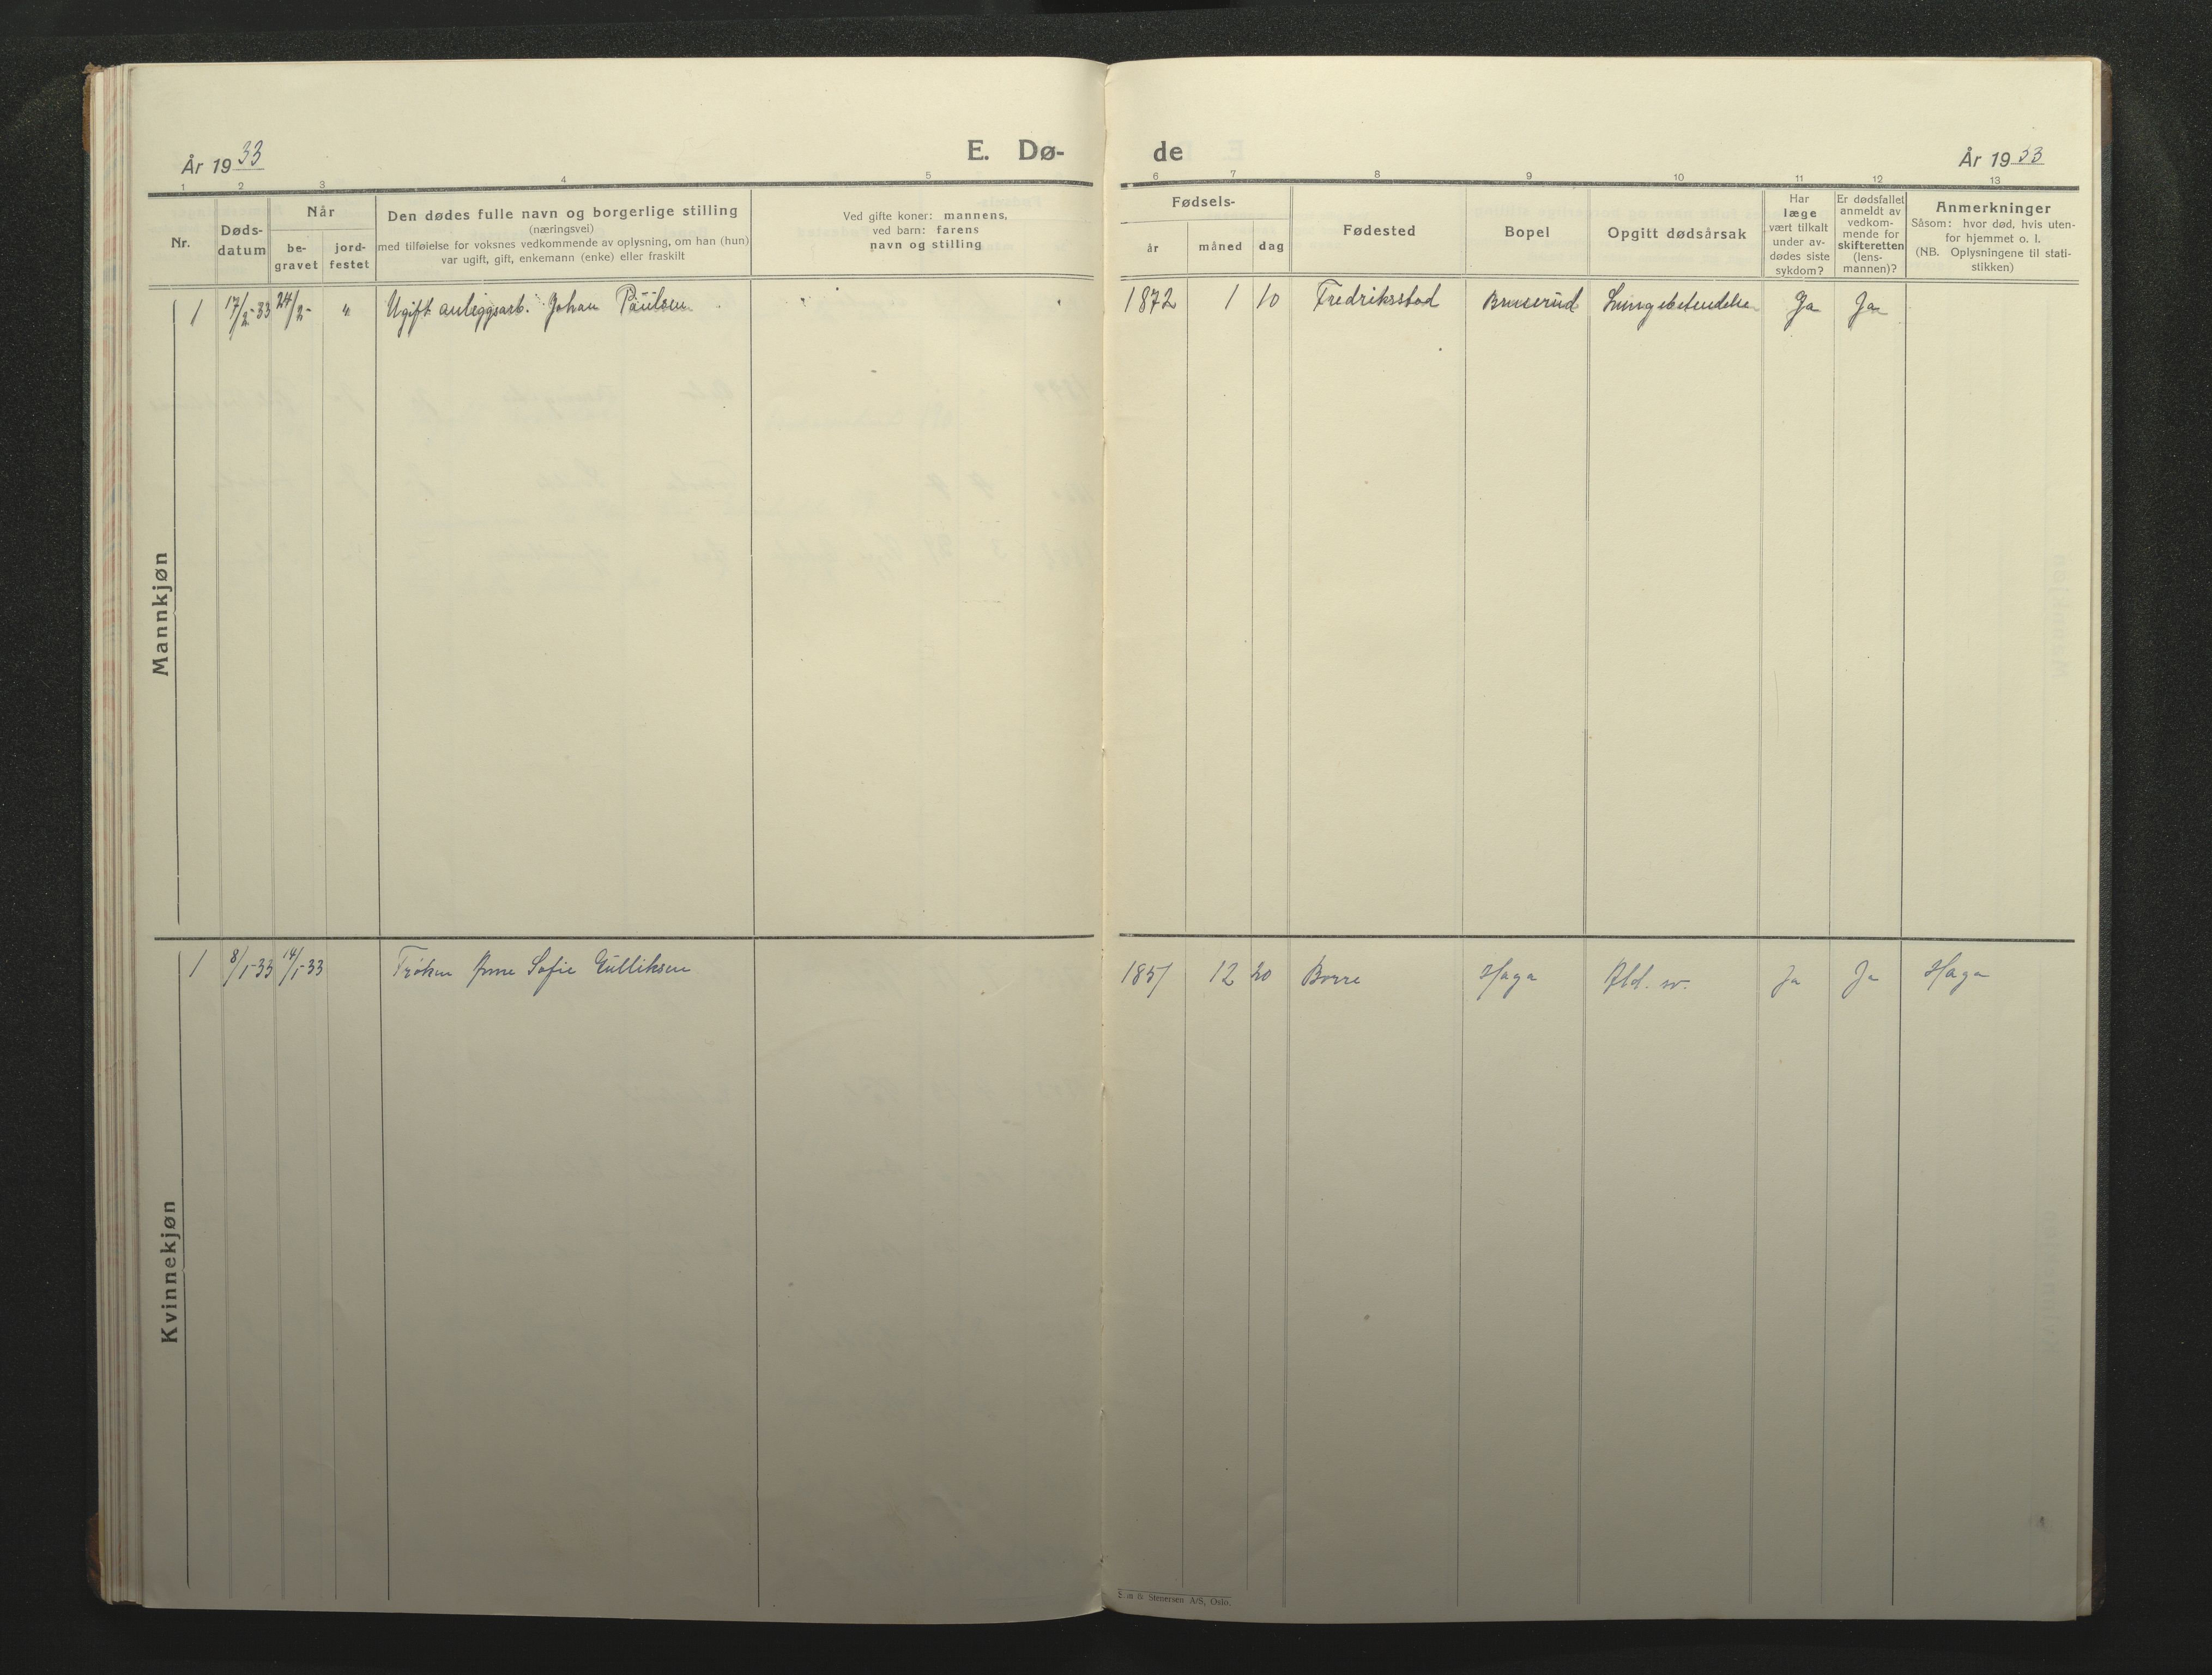 År 1933
E. Dø-
1 2 3 4 5
Nr.
Døds-
datum
Når
be-
gravet
jord-
festet
Den dødes fulle navn og borgerlige stilling
(næringsvei)
med tilføielse for voksnes vedkommende av oplysning, om han (hun)
var ugift, gift, enkemann (enke) eller fraskilt
Ved gifte koner: mannens,
ved barn: farens
navn og stilling
Mannkjøn
1 17/2-33 24/2- " Ugift anleggsarb. Johan Paulsen
Kvinnekjøn
1 8/1-33 14/1-33 Frøken Anne Sofie Gulliksen
de
År 1933
6 7 8 9 10 11 12 13
Fødsels-
år måned dag
Fødested
Bopel
Opgitt dødsårsak
Har
læge
vært tilkalt
under av-
dødes siste
sykdom?
Er dødsfallet
anmeldt av
vedkom-
mende for
skifteretten
(lens-
mannen)?
Anmerkninger
Såsom: hvor død, hvis uten-
for hjemmet o. l.
(NB. Oplysningene til stati-
stikken)
1872 1 10 Fredriksstad Bruserud Lungebetendelse Ja Ja
1851 12 20 Borre Haga Ald. sv. Ja Ja Haga
Stenersen A/S, Oslo.